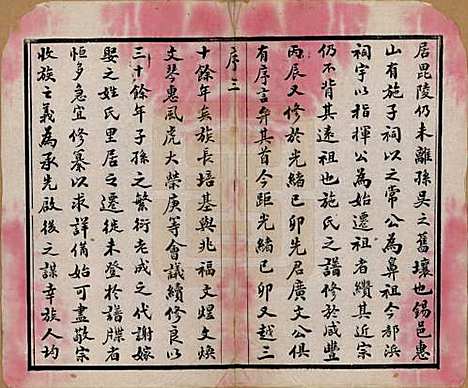 居毘陵仍未離孫吳之舊壤也錫邑惠
山有施子祠以之常公為鼻祖今都浜
祠宇以指揮公為始遷祖者纘其近宗
仍不背其遠祖也施氏之譜修於咸豐
丙辰又修於光緒己卯先君廣文公俱
有序言弁其首今距光緒己卯又越三
序三
十餘年矣族長培基與兆福文煌文煥
文琴惠風虎大榮庚等會議續修良以
三十餘年子孫之繁衍老成之代謝嫁
娶之姓氏里居之遷徙未登於譜牒者
恒多急宜修纂以求詳備始可盡敬宗
收族之義為承先啟後之謀幸族人均